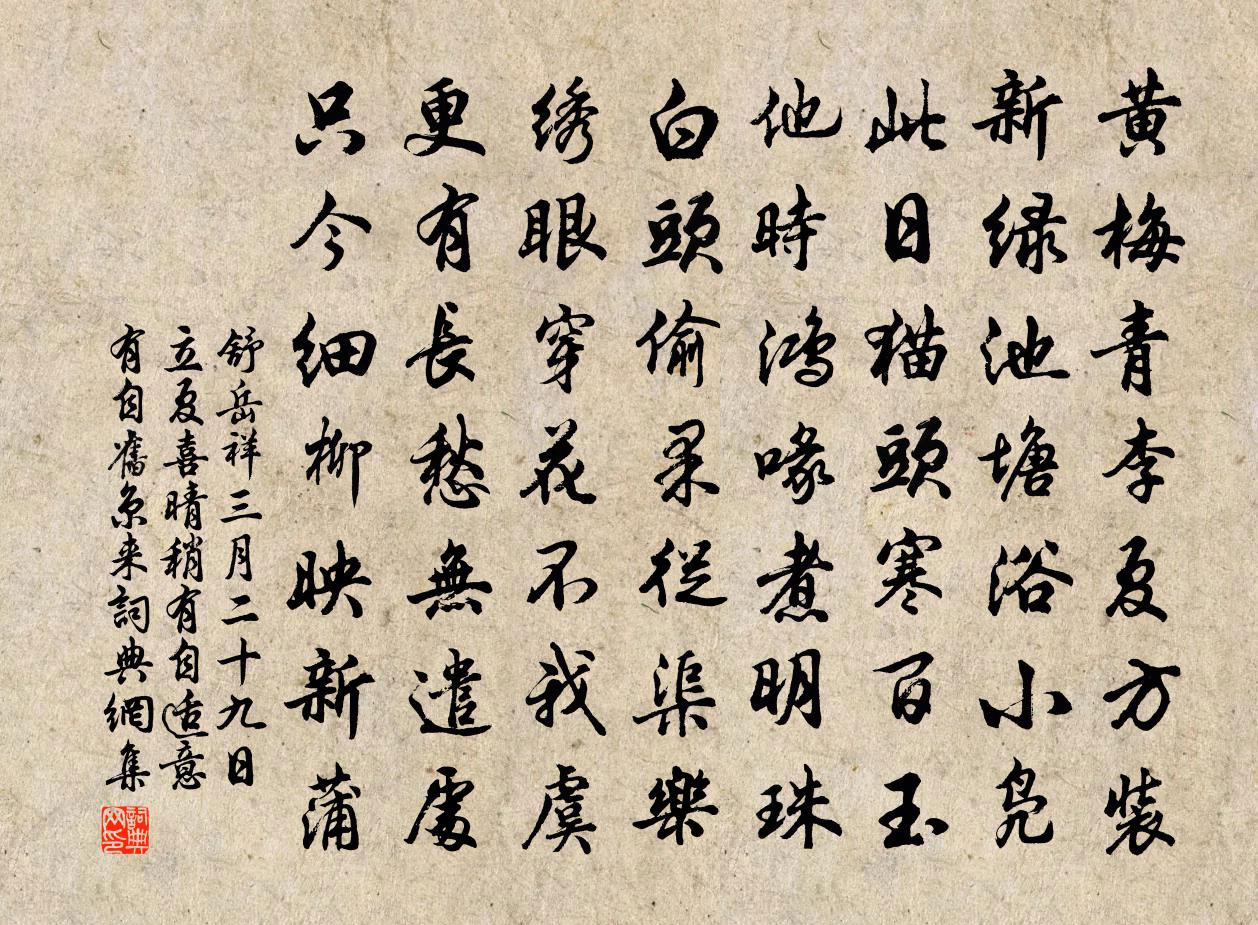 黄梅青李夏方裝
新绿池塘浴小凫
此日猫頭寒百玉
他時鸿喙煮明珠
白頭偷果從渠樂
绣眼穿花不我虞
更有長愁無遣處
只今细柳映新蒲
舒岳祥三月二十九日
立夏喜晴稍有自适意
有自舊京来詞典網集
詞典网印